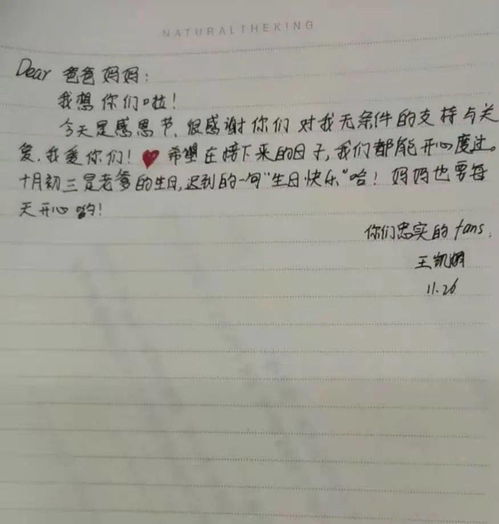 NATURALTHEKING
Dear 爸爸妈妈:
我想你们啦!
今天是感恩节,很感谢你们对我无条件的支持与关
爱,我爱你们!❤希望在接下来的日子,我们都能开心度过。
十月初三是老爹的生日,迟到的一句"生日快乐"哈!妈妈也要每
天开心哟!
你们忠实的fans.
王凯明
11.26